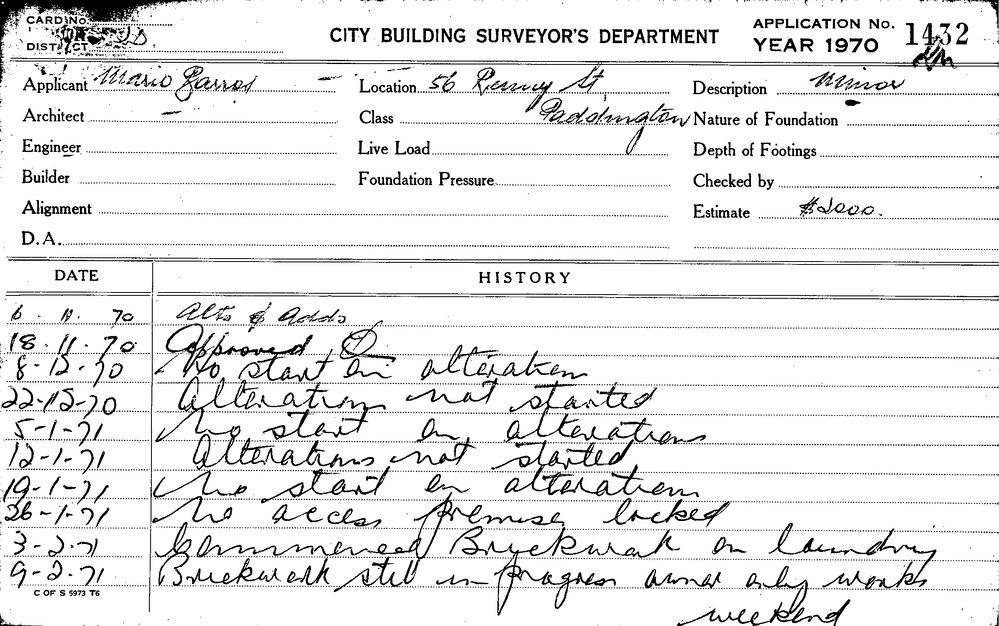 CARD No.
DISTRICT
CITY BUILDING SURVEYOR'S DEPARTMENT
APPLICATION No. 1432
YEAR 1970
Applicant Mario Barros
Location 56 Renny St
Description Minor
Architect -
Class Paddington
Nature of Foundation
Engineer
Live Load
Depth of Footings
Builder
Foundation Pressure
Checked by
Alignment
Estimate $2000.
D.A.
DATE HISTORY
6. 11. 70 Alts & Adds
18. 11. 70 Approved
8-12-70 No start on alteration
22-12-70 Alterations not started
5-1-71 No start on alterations
12-1-71 Alterations not started
19-1-71 No start on alterations
26-1-71 No access premises locked
3-2-71 Commenced Brickwork on laundry
9-2-71 Brickwork still in progress owner only works
weekend
C OF S 5973 T6